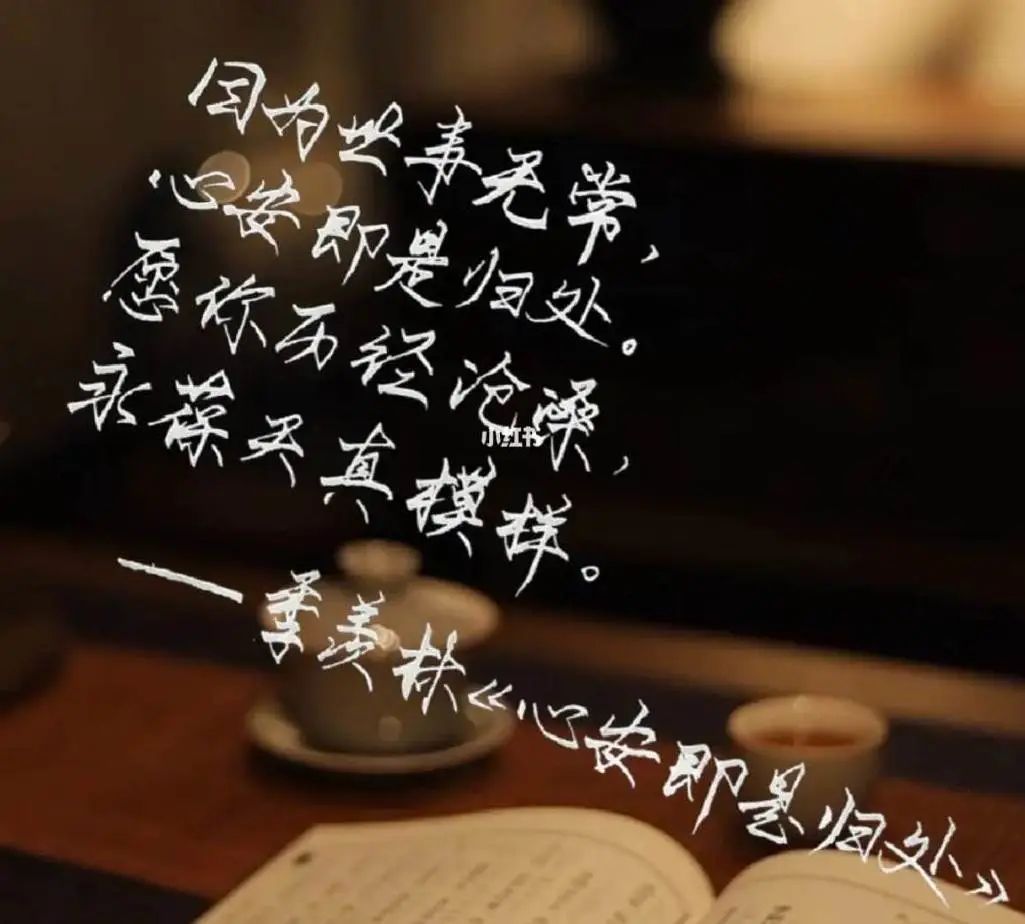 因为世事无常，
心安即是归处。
愿你历经沧桑，
永葆天真模样。
小红书
—季羡林《心安即是归处》